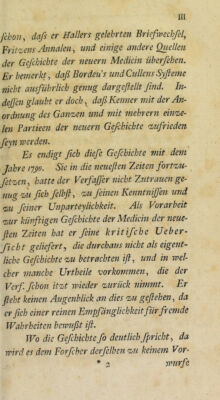 III
schon, daſs er Hallers gelehrten Briefwechſel,
Fritzens Annalen, und einige andere Quellen
der Geſchichte der neuern Medicin überſehen.
Er bemerkt, daſs Bordeu's und Cullens Syſteme
nicht ausführlich genug dargeſtellt ſind. In-
deſſen glaubt er doch, daſs Kenner mit der An-
ordnung des Ganzen und mit mehrern einzel-
len Partieen der neuern Geſchichte zufrieden
ſeyn werden.
Es endigt ſich dieſe Geſchichte mit dem
Jahre 1790. Sie in die neueſten Zeiten fortzu-
ſetzen, hatte der Verfaſſer nicht Zutrauen ge-
nug zu ſich ſelbſt, zu ſeinen Kenntniſſen und
zu ſeiner Unparteylichkeit. Als Vorarbeit
zur künftigen Geſchichte der Medicin der neue-
ſten Zeiten hat er ſeine kritiſche Ueber-
ſicht geliefert, die durchaus nicht als eigent-
liche Geſchichte zu betrachten iſt, und in wel-
cher manche Urtheile vorkommen, die der
Verf. ſchon itzt wieder zurück nimmt. Er
ſteht keinen Augenblick an dies zu geſtehen, da
er ſich einer reinen Empfänglichkeit für fremde
Wahrheiten bewuſst iſt.
Wo die Geſchichte ſo deutlich ſpricht, da
wird es dem Forſcher derſelben zu keinem Vor-
* 2 wurfe